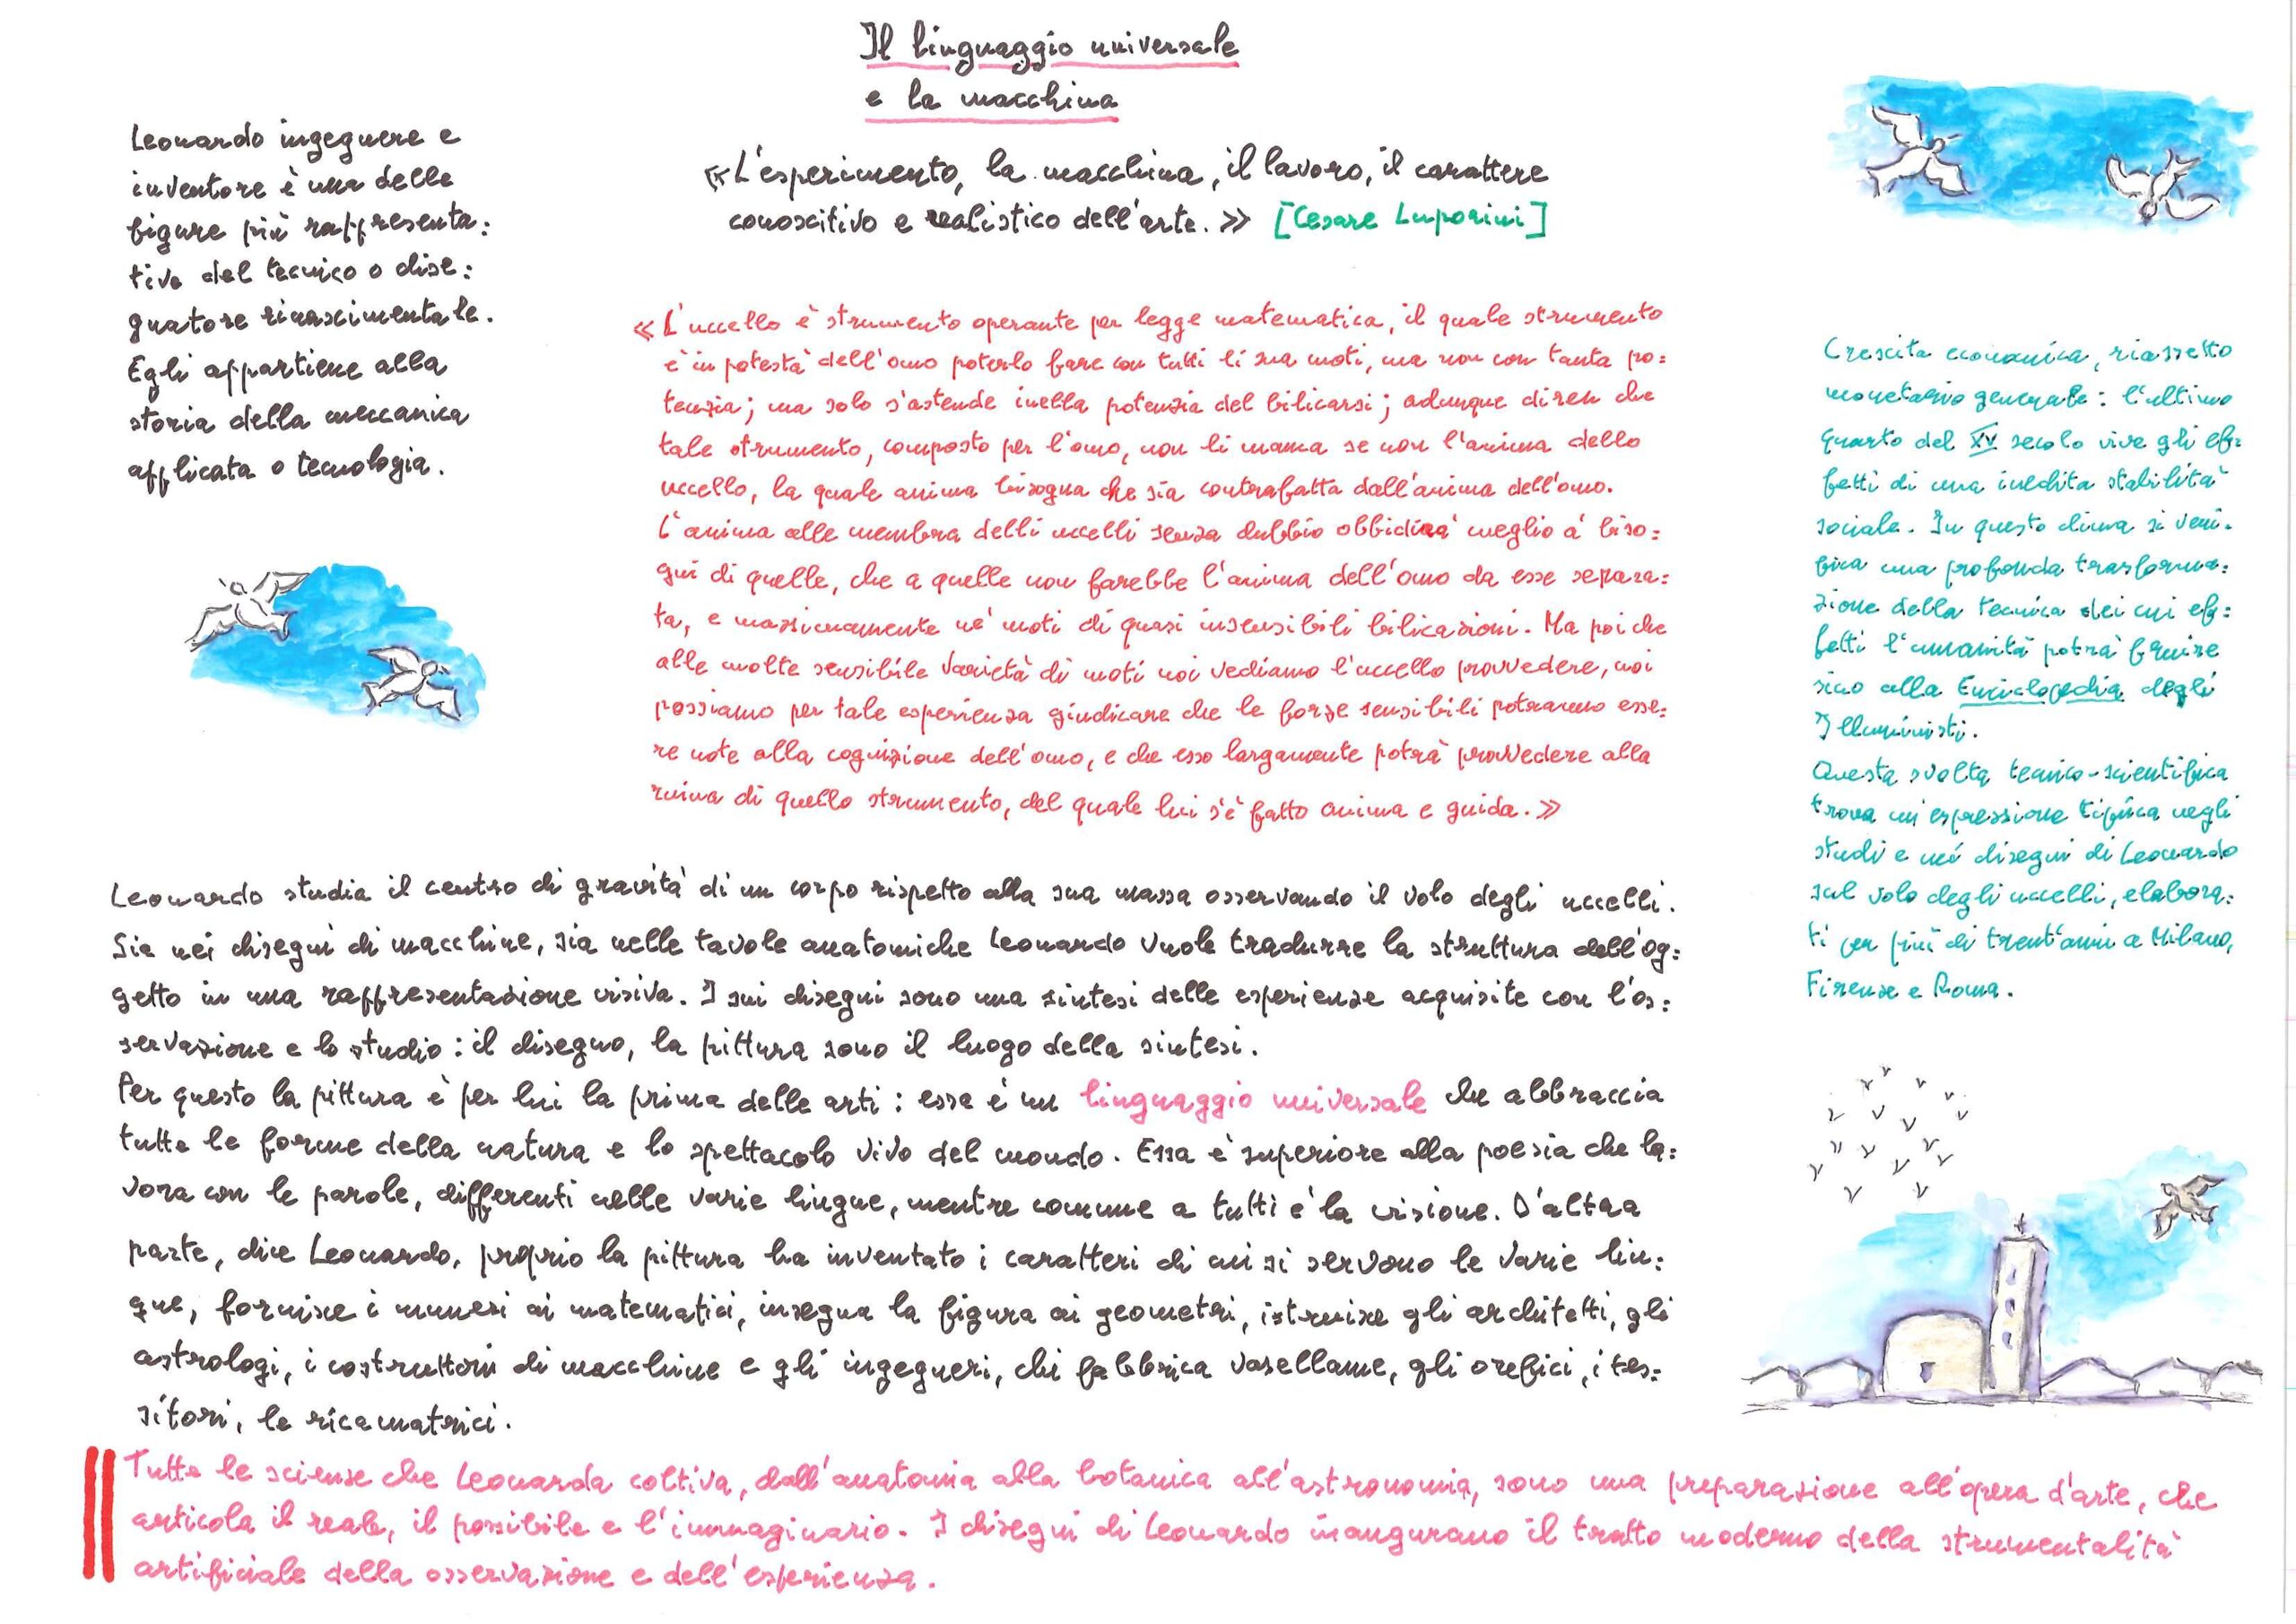 Il linguaggio universale
e la macchina
«L'esperimento, la macchina, il lavoro, il carattere
conoscitivo e realistico dell'arte.» [Cesare Luporini]
Leonardo ingegnere e
inventore è una delle
figure più rappresenta:
tive del tecnico o dise:
gnatore rinascimentale.
Egli appartiene alla
storia della meccanica
applicata o tecnologia.
«L'uccello è strumento operante per legge matematica, il quale strumento
è in potestà dell'omo poterlo fare con tutti li sua moti, ma non con tanta po:
tenzia; ma solo s'astende inella potenzia del bilicarsi; adunque diren che
tale strumento, composto per l'omo, non li manca se non l'anima dello
uccello, la quale anima bisogna che sia contrafatta dall'anima dell'omo.
L'anima alle membra delli uccelli senza dubbio obbidirà meglio a' biso:
gni di quelle, che a quelle non farebbe l'anima dell'omo da esse separa:
ta, e massimamente ne' moti di quasi insensibili bilicazioni. Ma poi che
alle molte sensibile varietà di moti noi vediamo l'uccello provvedere, noi
possiamo per tale esperienza giudicare che le forze sensibili potranno esse:
re note alla cognizione dell'omo, e che esso largamente potrà provvedere alla
ruina di quello strumento, del quale lui s'è fatto anima e guida.»
Crescita economica, riassetto
monetario generale: l'ultimo
quarto del XV secolo vive gli ef:
fetti di una inedita stabilità
sociale. In questo clima si veri:
fica una profonda trasforma:
zione della tecnica dei cui ef:
fetti l'umanità potrà fruire
sino alla Enciclopedia degli
Illuministi.
Questa svolta tecnico-scientifica
trova un'espressione tipica negli
studi e nei disegni di Leonardo
sul volo degli uccelli, elabora:
ti per più di trent'anni a Milano,
Firenze e Roma.
Leonardo studia il centro di gravità di un corpo rispetto alla sua massa osservando il volo degli uccelli.
Sia nei disegni di macchine, sia nelle tavole anatomiche Leonardo vuole tradurre la struttura dell'og:
getto in una raffresentazione visiva. I sui disegni sono una sintesi delle esperienze acquisite con l'os:
servazione e lo studio: il disegno, la pittura sono il luogo della sintesi.
Per questo la pittura è per lui la prima delle arti: essa è un linguaggio universale che abbraccia
tutte le forme della natura e lo spettacolo vivo del mondo. Essa è superiore alla poesia che la:
vora con le parole, differenti nelle varie lingue, mentre comune a tutti è la visione. D'altra
parte, dice Leonardo, proprio la pittura ha inventato i caratteri di cui si servono le varie lin:
gue, fornisce i numeri ai matematici, insegna la figura ai geometri, istruisce gli architetti, gli
astrologi, i costruttori di macchine e gli ingegneri, chi fabbrica vasellame, gli orefici, i tes:
sitori, le ricamatrici.
Tutte le scienze che Leonarda coltiva, dall'anatomia alla botanica all'astronomia, sono una preparazione all'opera d'arte, che
articola il reale, il possibile e l'immaginario. I disegni di Leonardo inaugurano il tratto moderno della strumentalità
artificiale della osservazione e dell'esperienza.